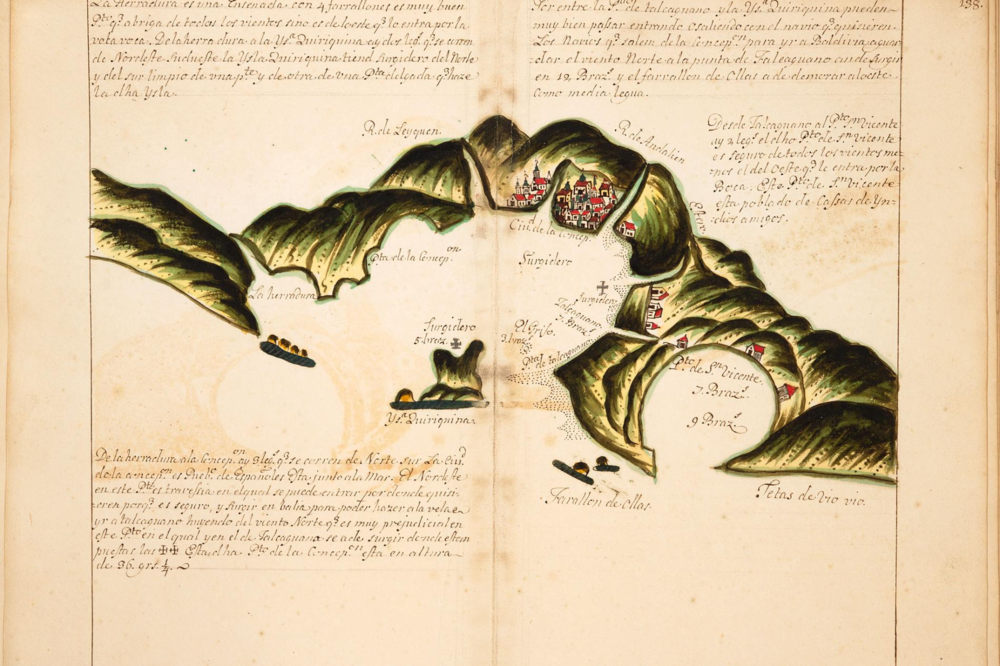 138.
La Herradura es una Ensenada con 4 farrallones es muy buen
Pto. q.e abriga de todos los vientos sino es de loeste q.e lo entra por la
vaia voca. De la herradura a la Ys.a Quiriquina ay dos leg.s q.e se corren
de Nordeste Sudueste la Ysla Quiriquina tiene Surgidero del Norte
y del sur limpio de una p.te y de otra de una P.ta delgada q.e haze
la dha Ysla.
Por entre la P.ta de talcaguano y la Ys.a Quiriquina pueden
muy bien passar entrando o saliendo con el navio q.e quisieren.
Los Navios q.e salem de la Concep.on para yr a Baldivia aguar
olar el viento Norte a la punta de Talcaguano an de surgir
en 12 Braz.s y el farrallon de Ollas a de demorar al oeste
como media legua.
Desde Talcaguano al P.to S.n Vicente
ay 2 leg.s el dho P.to de S.n Vicente
es seguro de todos los vientos me
nos el del Oeste q.e le entra por la
Boca. Este P.to de S.n Vicente
esta poblado de Cassas de Yn
dios amigos.
R. de Leyquen.
R. de Andalien
Ciu. de la Concep.
P.ta de la Concep.on
Surgidero
La herradura
Surgidero
Talcaguano
7. Braz.s
Surgidero
5. braz.s
El Griso.
3. braz.s
P.ta de talcaguano
P.to de S.n Vicente
7. Braz.s
9 Braz.s
Ys.a Quiriquina
Farallon de Ollas
Tetas de Vio vio.
De la herradura a la Concep.on ay 3 leg.s q.e se corren de Norte sur La Ciu.d
de la concep.on es Pueb.o de Españoles Esta junto a la Mar. El Nordeste
en este P.to es travessia en el qual se puede entrar por donde quisi
eren porq.e es seguro, y surgir en balia para poder hazer a la vela
yr a talcaguano huyendo del viento Norte q.e es muy prejudicial en
este P.to en el qual y en el de Talcaguano se a de surgir donde estan
puestas las ✠✠ Esta dha P.to de la Concep.on está en altura
de 36. grs. ¼.